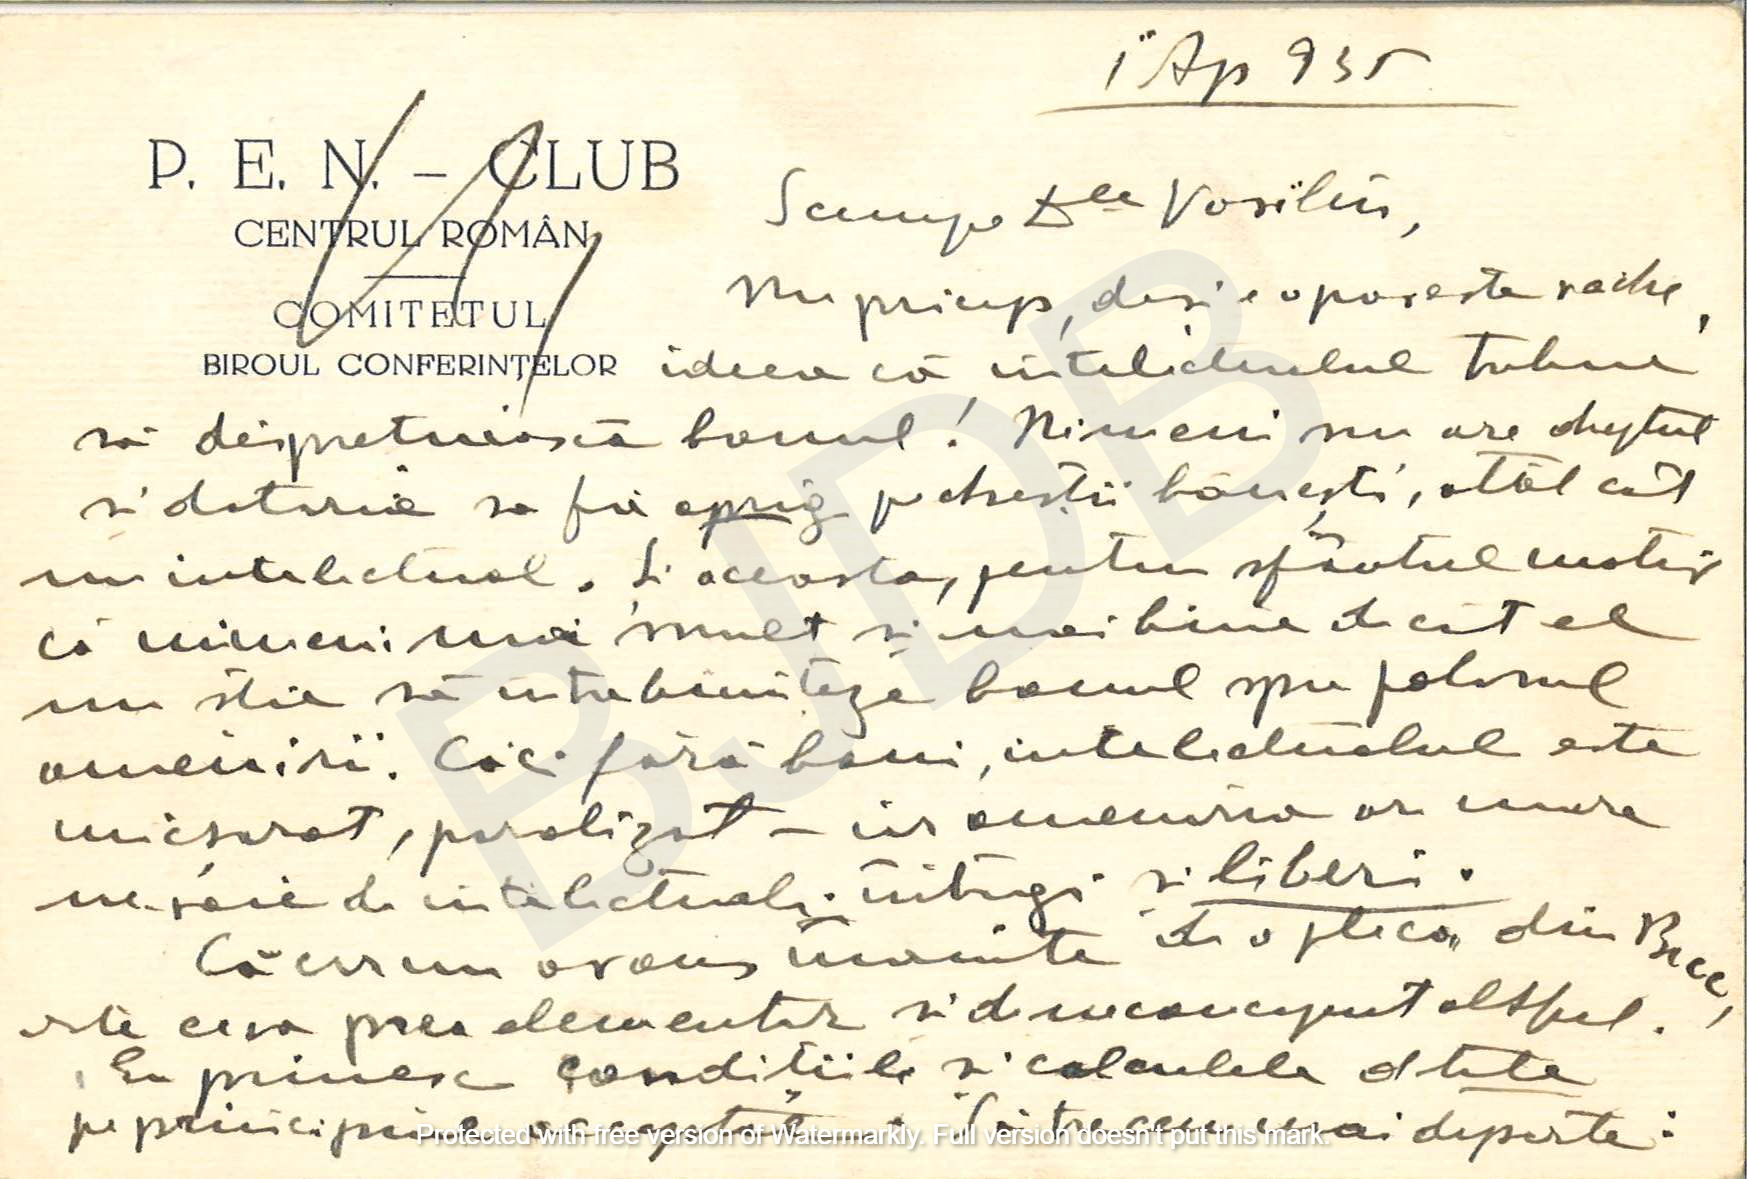 1 Ap 935
P. E. N. – CLUB
CENTRUL ROMÂN
COMITETUL
BIROUL CONFERINȚELOR
Scumpe Dle Vasiliu,
Nu pricep, deși e o poveste veche,
ideea că intelectualul trebue
să disprețuiască banul! Nimeni nu are dreptul
și datoria să fie aprig pe chestii bănești, atât cât
un intelectual. Și aceasta, pentru sfântul motiv
că nimeni mai mult și mai bine decât el
nu știe să întrebuințeze banul spre folosul
omenirii. Căci fără bani, intelectualul este
micșorat, paralizat – iar omenirea are mare
nevoie de intelectuali întregi și liberi.
Că vreun avans înainte de a pleca din Buc,
este ceva prea elementar și de neconceput altfel.
Eu primesc condițiile și calculele
pe principiile Să trecem mai departe:
BJDB
Protected with free version of Watermarkly. Full version doesn't put this mark.